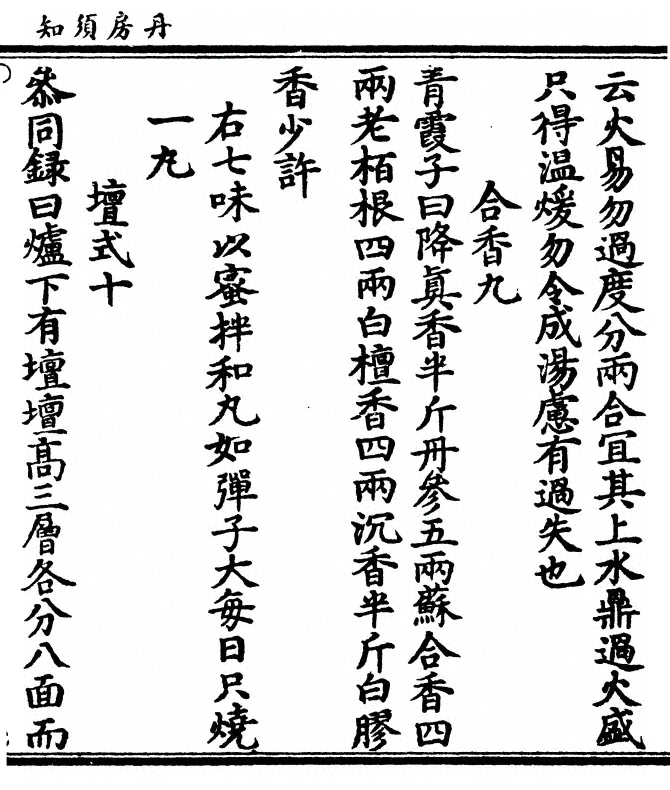 丹房須知
云火易勿過度分兩合宜其上水鼎過火盛
只得温煖勿令成湯慮有過失也
合香九
青霞子曰降真香半斤丹參五兩蘇合香四
兩老栢根四兩白檀香四兩沉香半斤白膠
香少許
右七味以蜜拌和丸如彈子大每日只燒
一丸
壇式十
叅同録曰爐下有壇壇高三層各分八面而